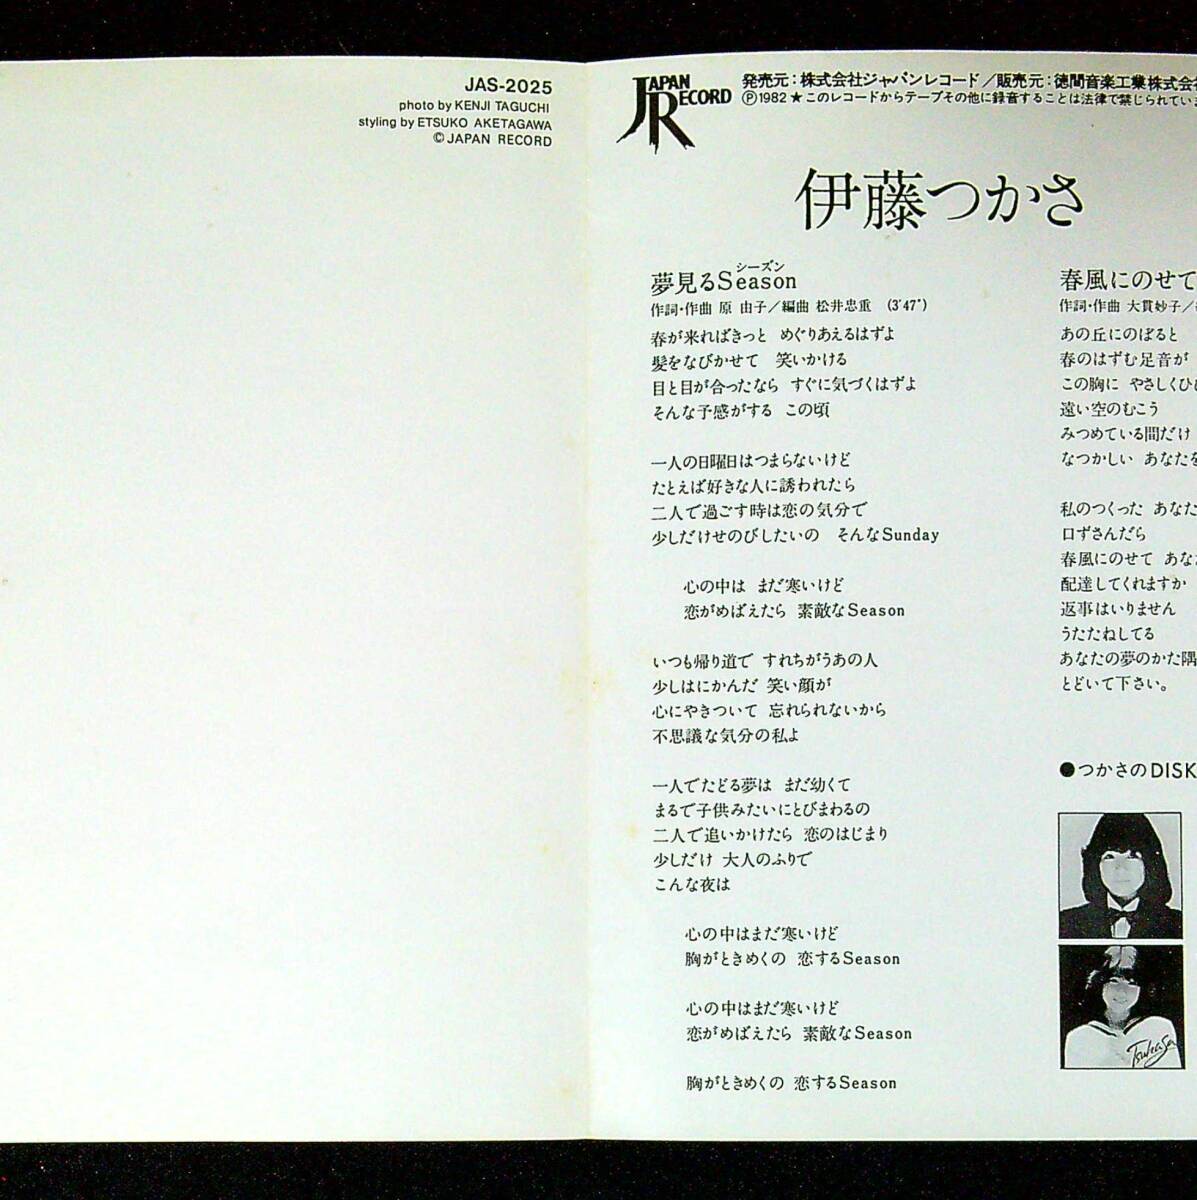 JAS-2025
photo by KENJI TAGUCHI
styling by ETSUKO AKETAGAWA
© JAPAN RECORD
JAPAN RECORD
発売元：株式会社ジャパンレコード／販売元：徳間音楽工業株式会社
Ⓟ1982 ★このレコードからテープその他に録音することは法律で禁じられていま
伊藤つかさ
シーズン
夢見るSeason
作詞・作曲 原 由子／編曲 松井忠重 (3'47")
春が来ればきっと めぐりあえるはずよ
髪をなびかせて 笑いかける
目と目が合ったなら すぐに気づくはずよ
そんな予感がする この頃
一人の日曜日はつまらないけど
たとえば好きな人に誘われたら
二人で過ごす時は恋の気分で
少しだけせのびしたいの そんなSunday
心の中は まだ寒いけど
恋がめばえたら 素敵なSeason
いつも帰り道で すれちがうあの人
少しはにかんだ 笑い顔が
心にやきついて 忘れられないから
不思議な気分の私よ
一人でたどる夢は まだ幼くて
まるで子供みたいにとびまわるの
二人で追いかけたら 恋のはじまり
少しだけ 大人のふりで
こんな夜は
心の中はまだ寒いけど
胸がときめくの 恋するSeason
心の中はまだ寒いけど
恋がめばえたら 素敵なSeason
胸がときめくの 恋するSeason
春風にのせて
作詞・作曲 大貫妙子／
あの丘にのぼると
春のはずむ足音が
この胸に やさしくひ
遠い空のむこう
みつめている間だけ
なつかしい あなたを
私のつくった あなた
口ずさんだら
春風にのせて あな
配達してくれますか
返事はいりません
うたたねしてる
あなたの夢のかた隅
とどいて下さい。
●つかさのDISK
Tsukasa